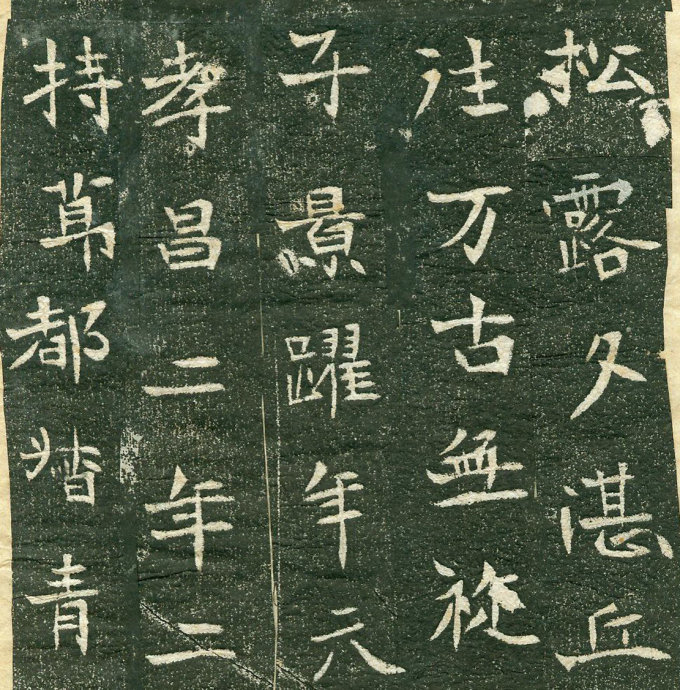 松露久湛丘
注万古無
子景躍年六
孝昌二年二
持節都督青